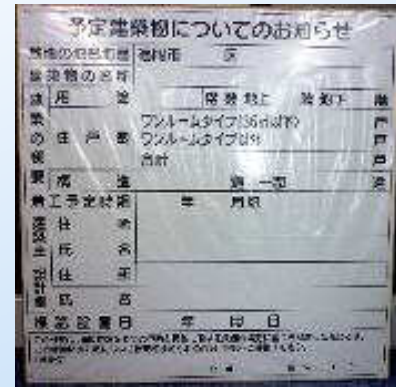 予定建築物についてのお知らせ
敷地の地名地番 福岡市 区
建築物の名称
建築の概要
用途 階数 地上 階 地下 階
住戸数 ワンルームタイプ(36㎡以下) 戸
ワンルームタイプ以外 戸
合計 戸
構造 造 一部 造
着工予定時期 年 月頃
建築主 住所
氏名
設計者 住所
氏名
標識設置日 年 月 日